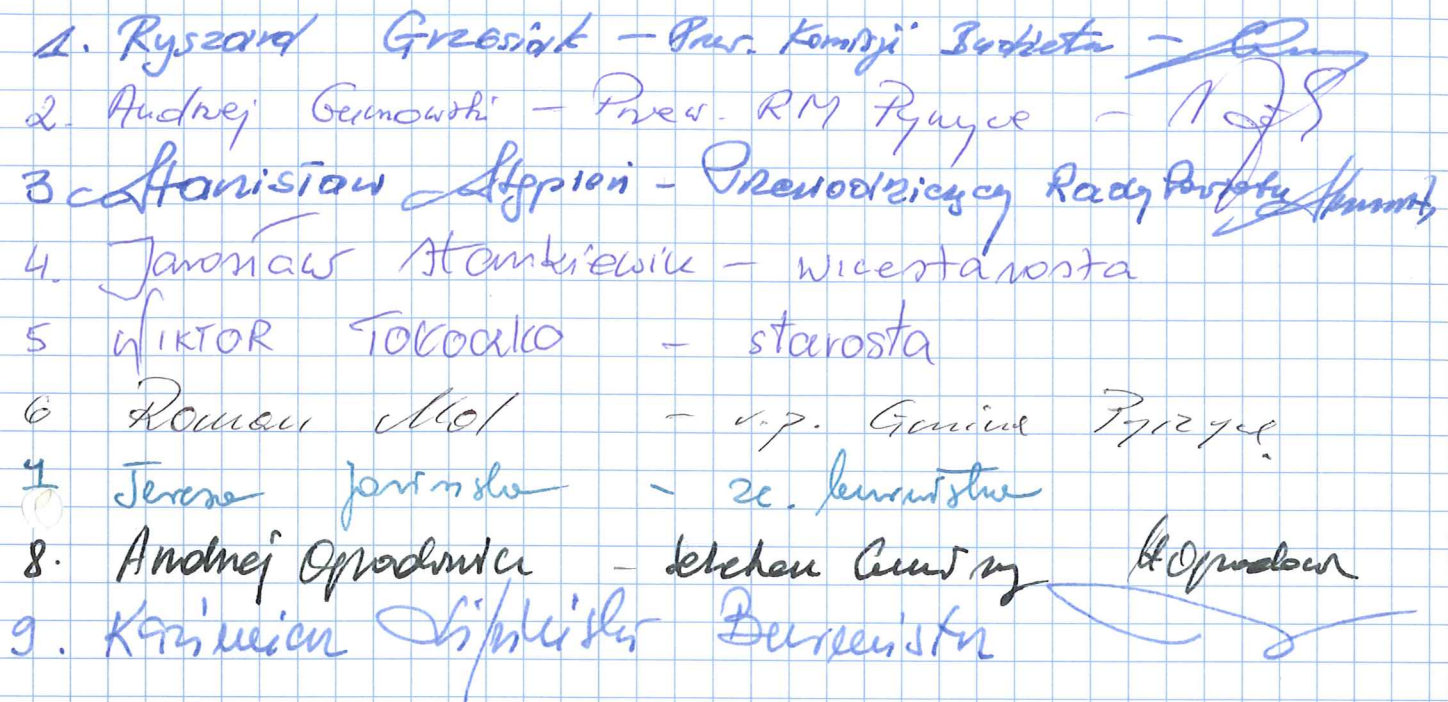 1. Ryszard Grzesiak - Prew. Komisji Budżetu -
2. Andrzej Gumowski - Przew. RM Pyrzyce -
3 Stanisław Stępień - Przewodniczący Rady Powiatu
4. Jarosław Stankiewicz - wicestarosta
5 WIKTOR Tołoczko - starosta
6 Roman Mol - v.p. Gmina Pyrzyce
7 Teresa Jasińska - zc. burmistrza
8. Andrzej Opradowicz - Gminy
9. Kazimierz Lipiński Burmistrz